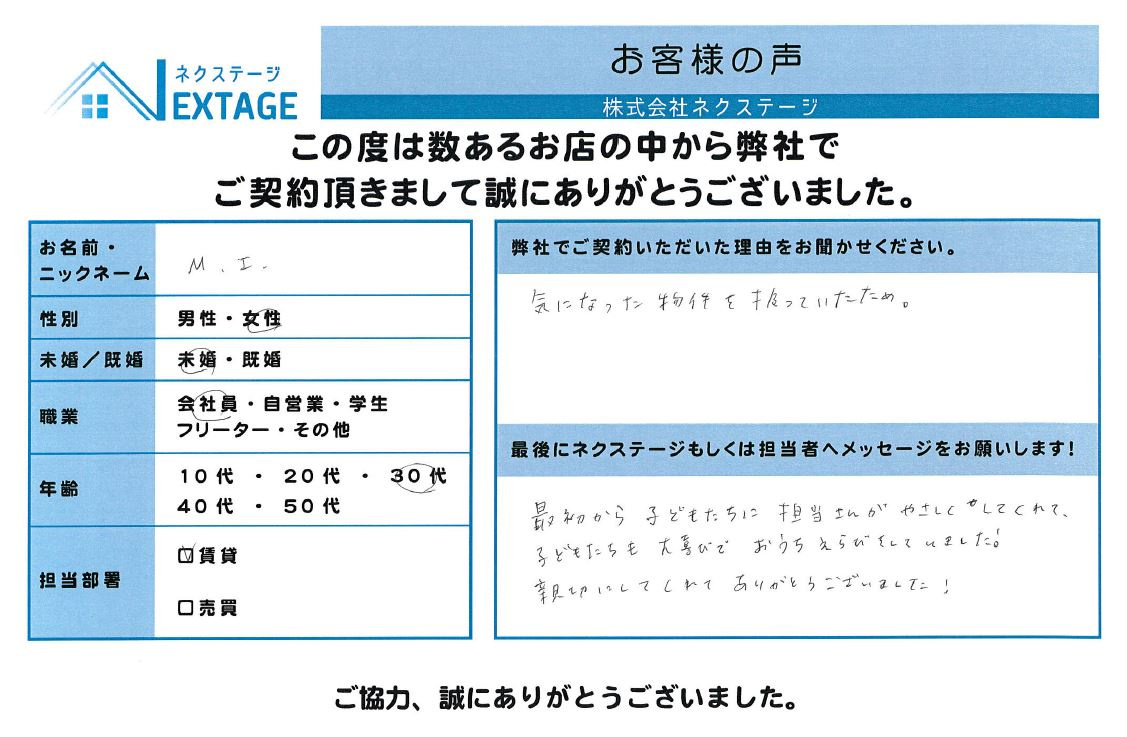 ネクステージ
NEXTAGE
お客様の声
株式会社ネクステージ
この度は数あるお店の中から弊社で
ご契約頂きまして誠にありがとうございました。
お名前・
ニックネーム
M. I.
性別
男性・女性
未婚／既婚
未婚・既婚
職業
会社員・自営業・学生
フリーター・その他
年齢
10代 ・ 20代 ・ 30代
40代 ・ 50代
担当部署
☑賃貸
☐売買
弊社でご契約いただいた理由をお聞かせください。
気になった物件を扱っていたため。
最後にネクステージもしくは担当者へメッセージをお願いします！
最初から子どもたちに担当さんがやさしくしてくれて、
子どもたちも大喜びでおうちえらびをしていました！
親切にしてくれてありがとうございました！
ご協力、誠にありがとうございました。